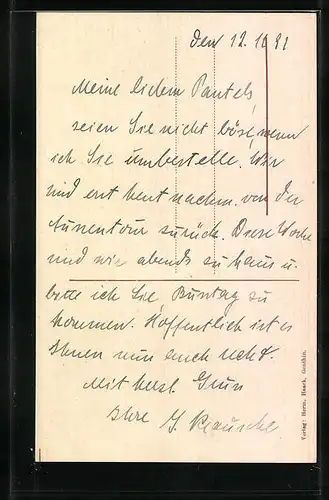 Den 12. 10 31
Meine lieben Pantels,
seien Sie nicht böse, wenn
ich Sie umbestelle. Wir
sind erst heut nachm. von der
Aussentour zurück. Diese Woche
sind wir abends zu Haus u.
bitte ich Sie, zu
kommen. Hoffentlich ist es
Ihnen nun auch recht.
Mit herzl. Grus
Ihre
Verlag: Herm. Haack, Genthin.